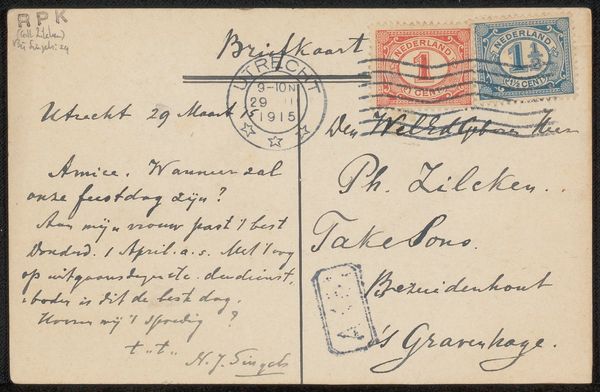 RPK
(coll. Zilcken)
Bij Singels: 29
Briefkaart
NEDERLAND
1
CENT
NEDERLAND
1½
1½ CENT
UTRECHT
9-10 N
29 III
1915
Utrecht 29 Maart 15
Amice. Wanneer zal
onze feestdag zijn?
Aan mijn vrouw past 't best
Donderd. 1 April a.s. Met 't oog
op uitgaansdagen etc. dendienst,
boden is dit de best dag.
Hooren wij 't spoedig ?
t.. t..
N. J. Singels
Den WelEdelgeboren Heer
Ph. Zilcken.
Bezuidenhout
's Gravenhage.